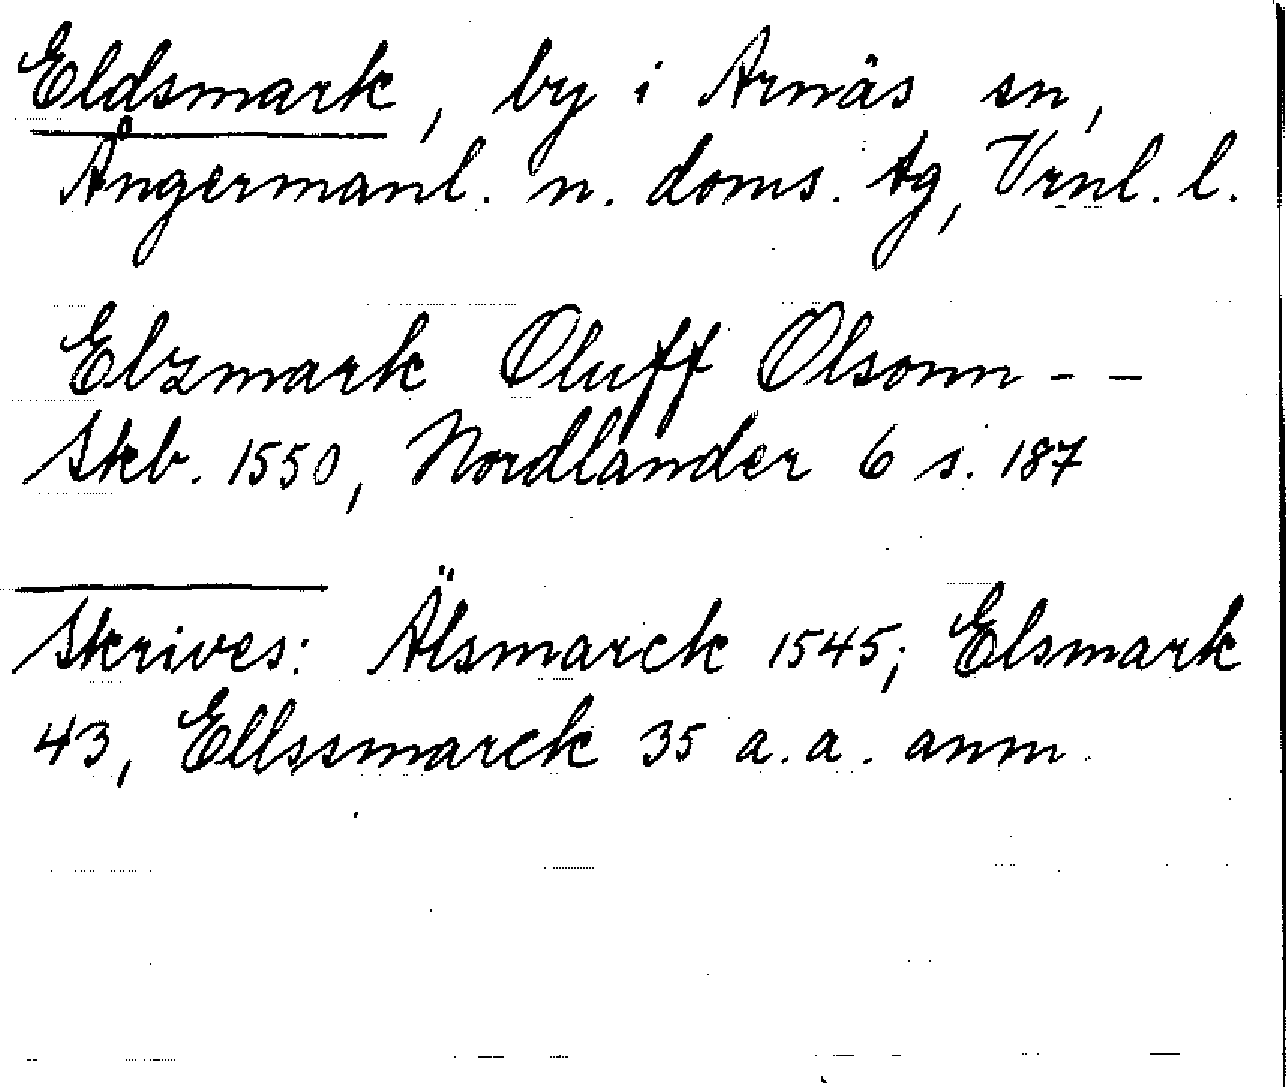 Eldsmark, by i Arnäs sn,
Ångermanl. n. doms. tg, Vrnl. l.
Elzmark Oluff Olsonn - -
Skb. 1550, Nordlander 6 s. 187
Skrives: Älsmarck 1545; Elsmark
43, Ellssmarck 35 a.a. anm.